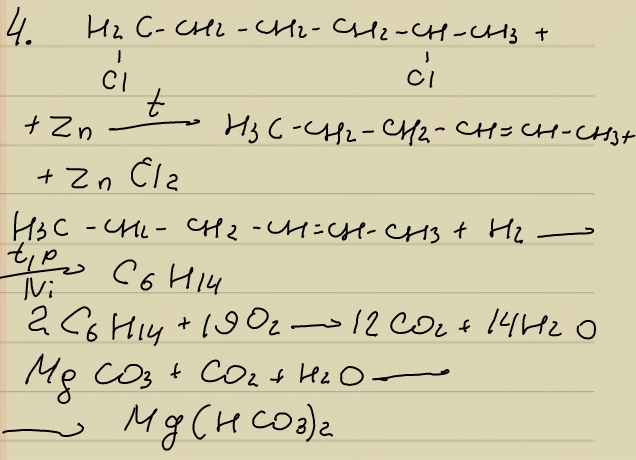 4. H₂C-CH₂-CH₂-CH₂-CH-CH₃ +
Cl Cl
+ Zn t→ H₃C-CH₂-CH₂-CH=CH-CH₃+
+ Zn Cl₂
H₃C-CH₂-CH₂-CH=CH-CH₃ + H₂ —
t, p / Ni → C₆H₁₄
2 C₆H₁₄ + 19O₂ → 12 CO₂ + 14H₂O
Mg CO₃ + CO₂ + H₂O —
→ Mg(HCO₃)₂